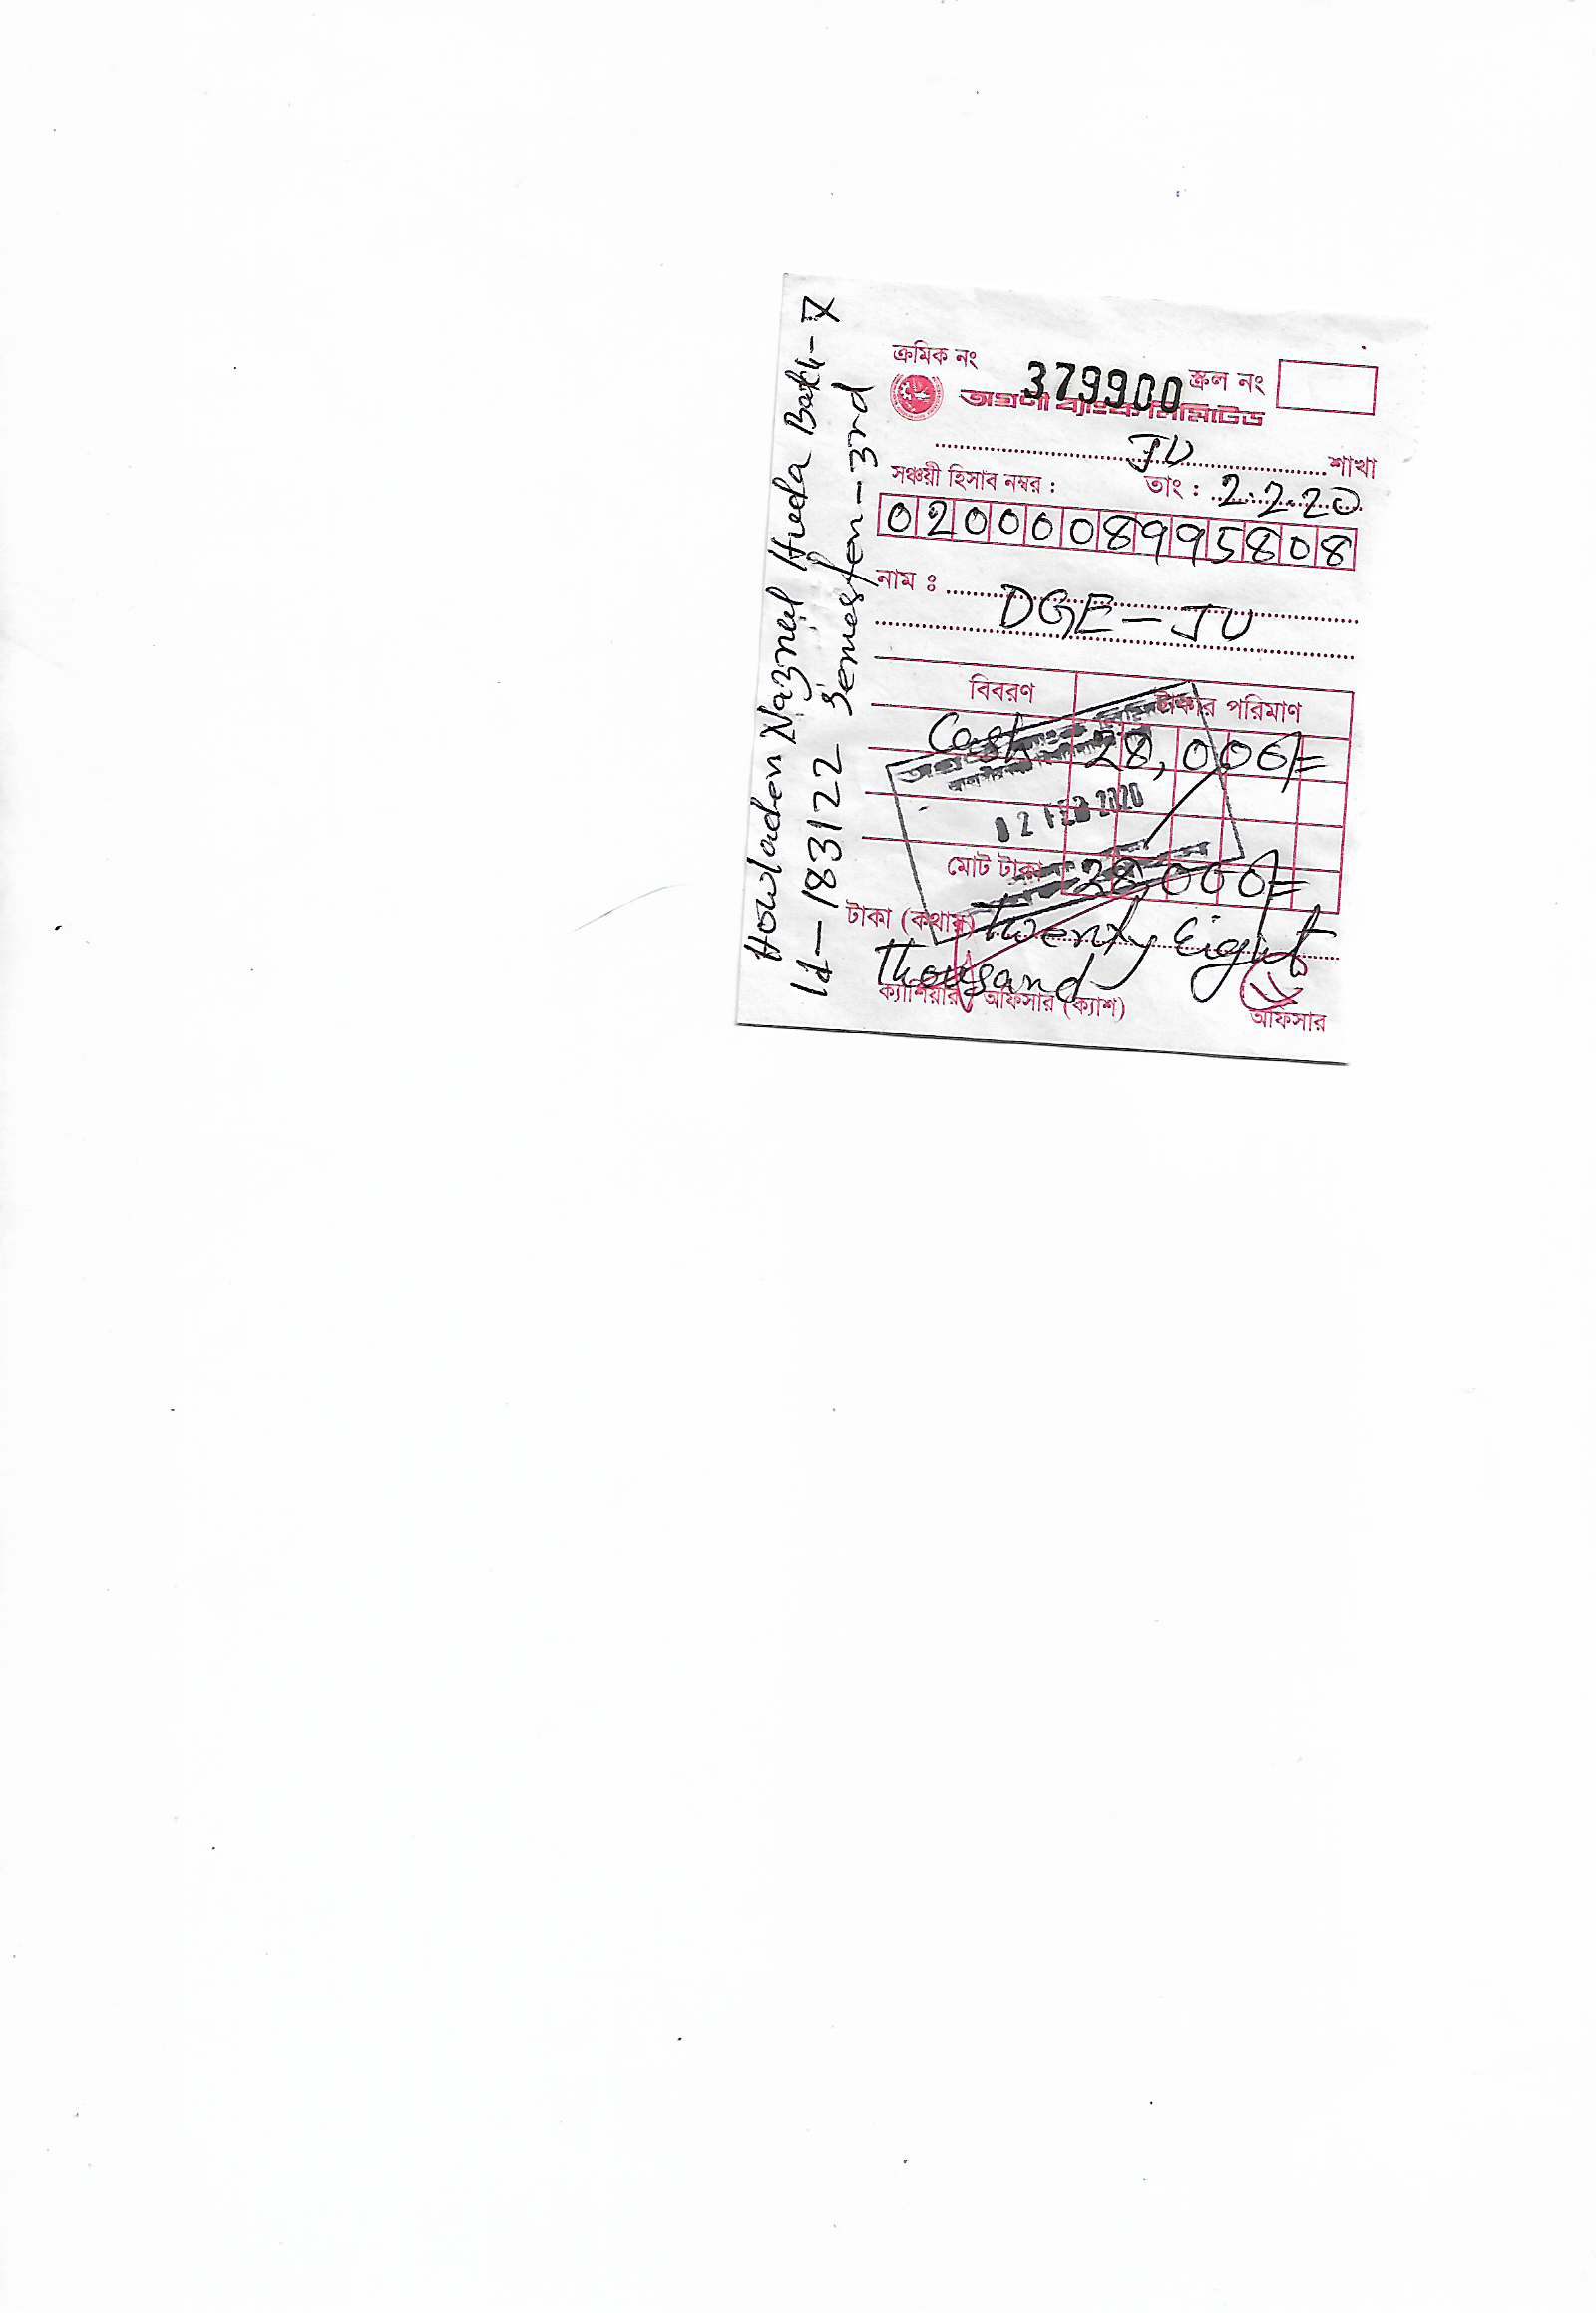 Howladen Nazmul Huda Batch-
Id-183122 Semesten-3rd
ক্রমিক নং 379900 স্ক্রল নং
অগ্রণী ব্যাংক লিমিটেড
JU শাখা
সঞ্চয়ী হিসাব নম্বর : তাং : 2.2.20
0200008995808
নাম ঃ DGE-JU
বিবরণ টাকার পরিমাণ
Cash 28,000/=
02 FEB 2020
মোট টাকা 28,000/=
টাকা (কথায়) Twenty Eight
Thousand
ক্যাশিয়ার অফিসার (ক্যাশ) অফিসার